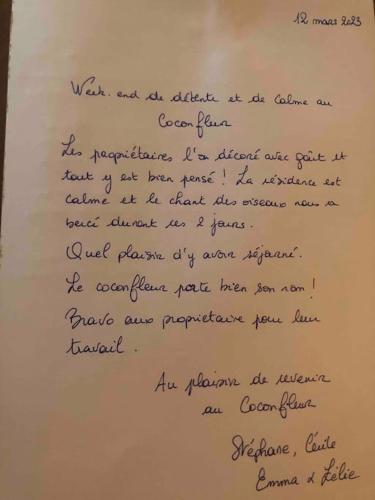 12 mars 2023
Week-end de détente et de calme au
Coconfleur
Les propriétaires l'on décoré avec goût et
tout y est bien pensé ! La résidence est
calme et le chant des oiseaux nous a
bercé durant ces 2 jours.
Quel plaisir d'y avoir séjourné.
Le coconfleur porte bien son nom !
Bravo aux propriétaire pour leur
travail.
Au plaisir de revenir
au Coconfleur
Stéphane, Cécile
Emma & Lélie